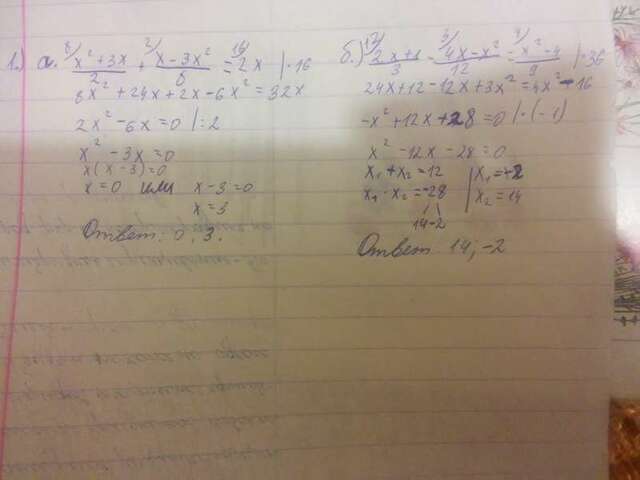 1.) а. ⁸⁾(x²+3x)/2 + ²⁾(x-3x²)/8 = ¹⁶⁾2x |·16
8x²+24x+2x-6x²=32x
2x²-6x=0 |:2
x²-3x=0
x(x-3)=0
x=0 или x-3=0
x=3
Ответ: 0, 3.
б.) ¹²⁾(2x+1)/3 - ³⁾(4x-x²)/12 = ⁴⁾(x²-4)/9 |·36
24x+12-12x+3x²=4x²-16
-x²+12x+28=0 |·(-1)
x²-12x-28=0
x₁+x₂=12 | x₁=-2
x₁·x₂=-28 | x₂=14
14 -2
Ответ 14, -2